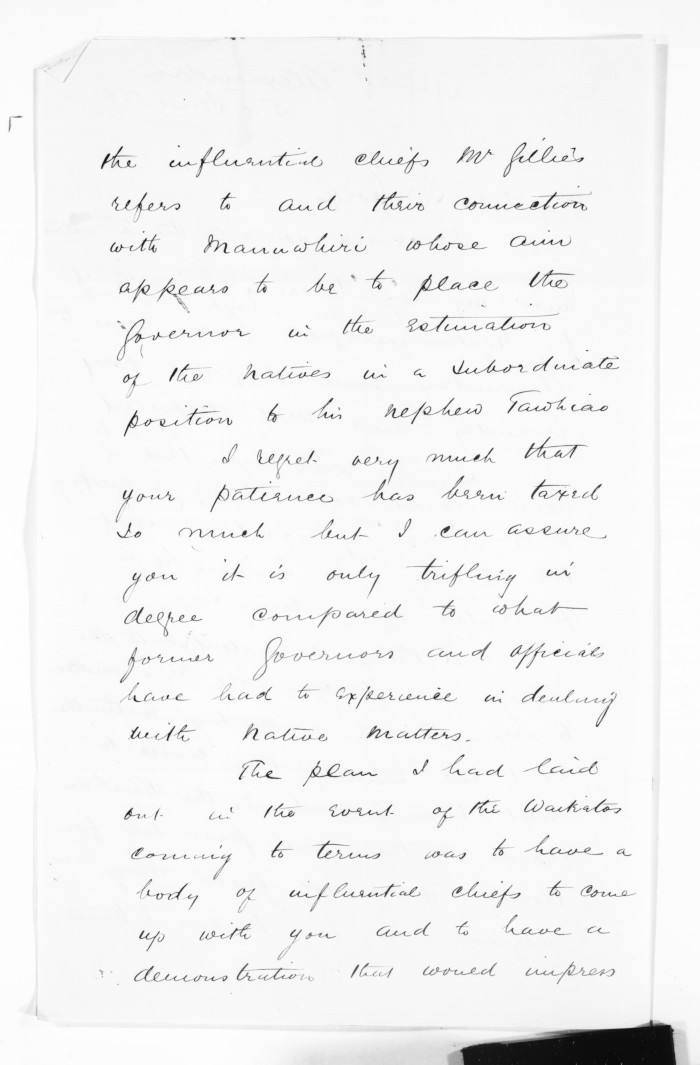 the influential chiefs Mr Gillies
refers to and their connection
with Manuwhiri whose aim
appears to be to place the
Governor in the estimation
of the Natives in a subordinate
position to his nephew Tawhiao
I regret very much that
your patience has been taxed
so much but I can assure
you it is only trifling in
degree compared to what
former Governors and officials
have had to experience in dealing
with Native Matters.
The plan I had laid
out in the event of the Waikatos
coming to terms was to have a
body of influential chiefs to come
up with you and to have a
demonstration that would impress